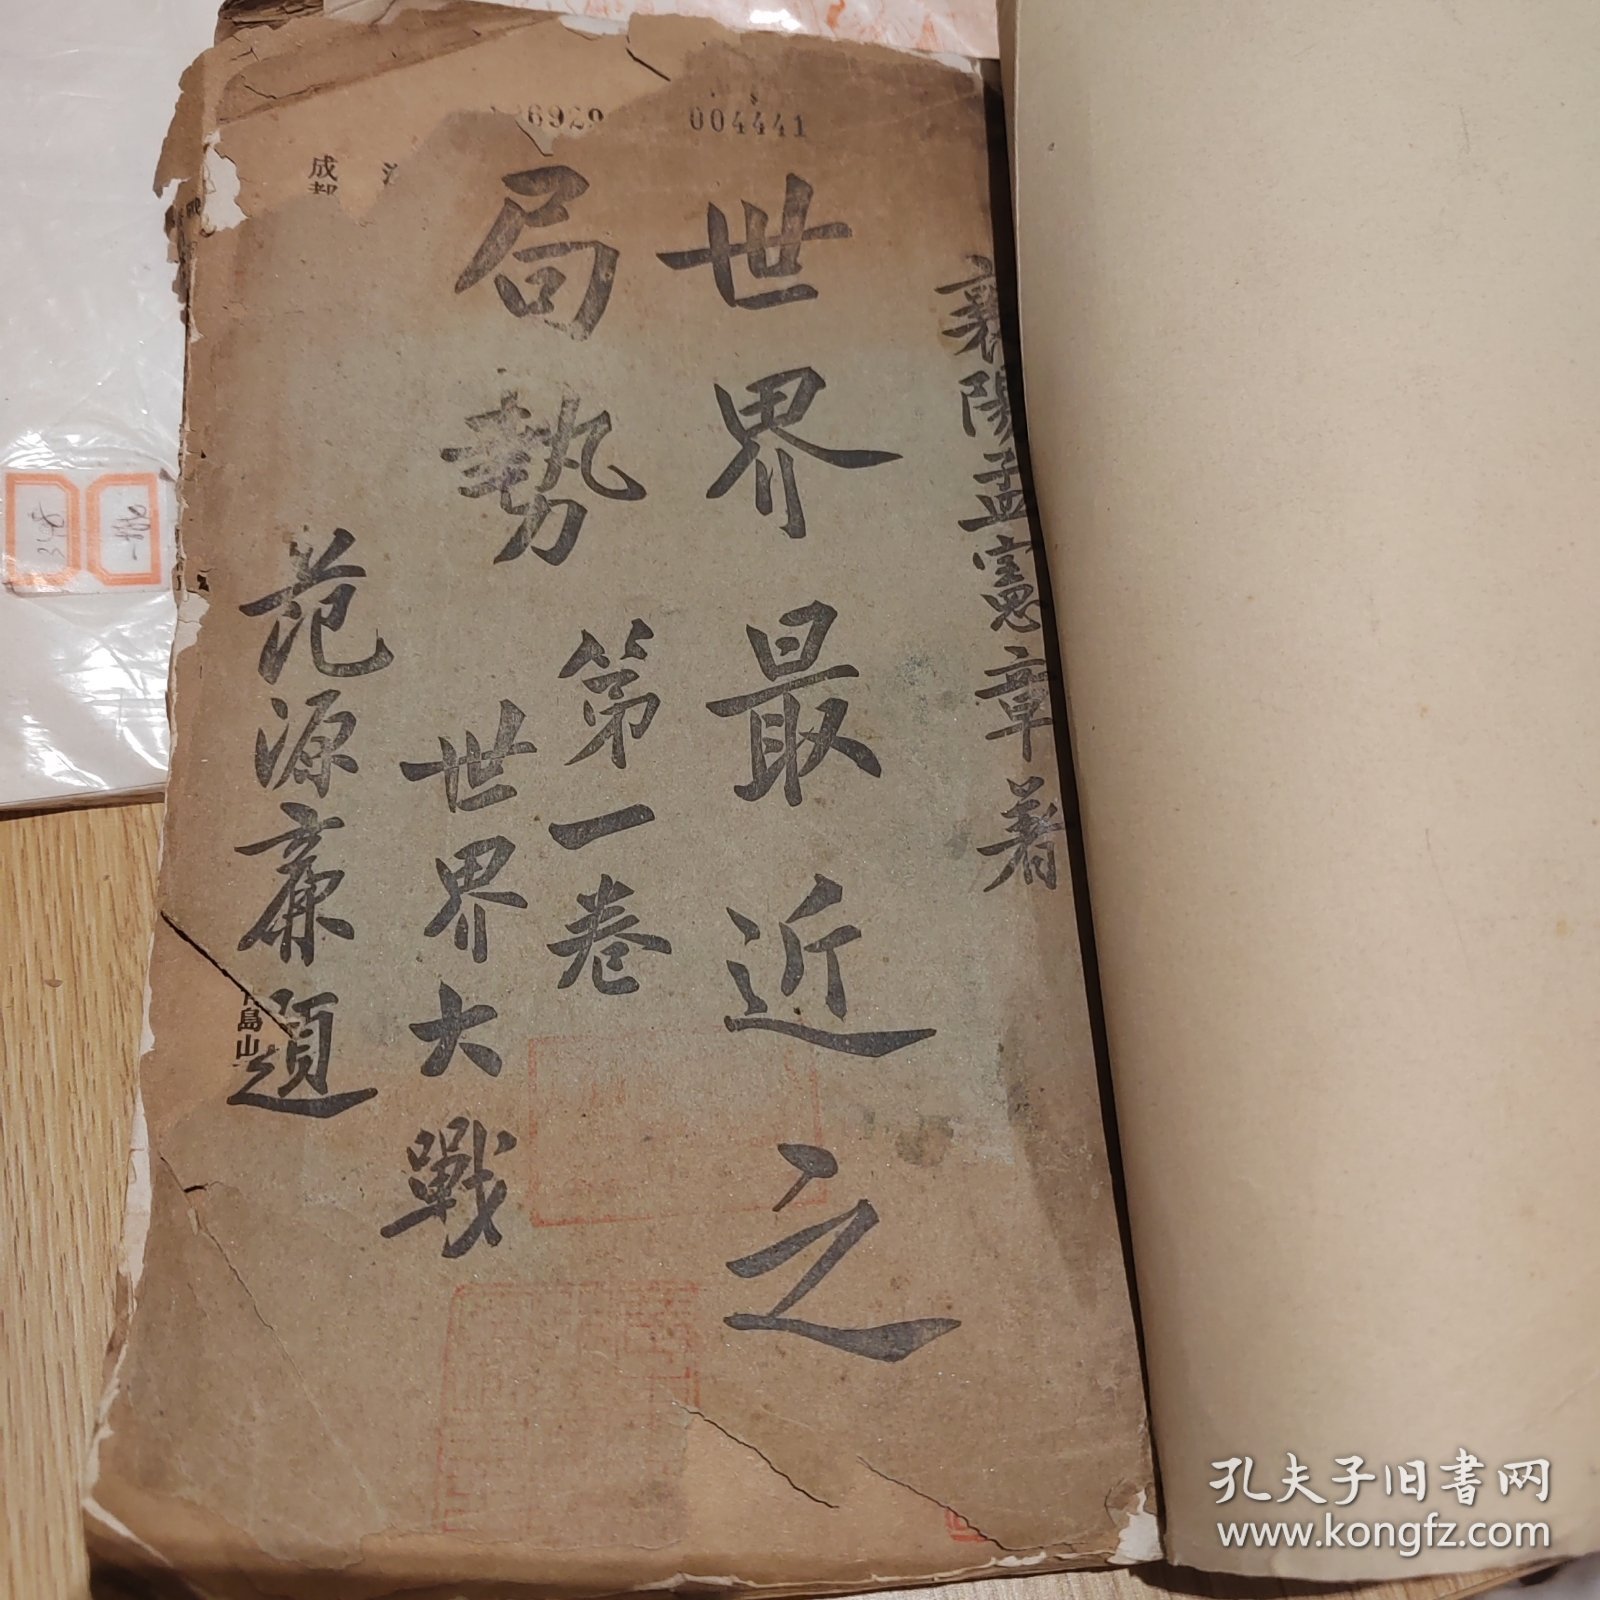 襄陽孟憲章著
世界最近之
局勢
第一卷
世界大戰
范源廉題
004441
6929
成都
島山
孔夫子旧书网
www.kongfz.com